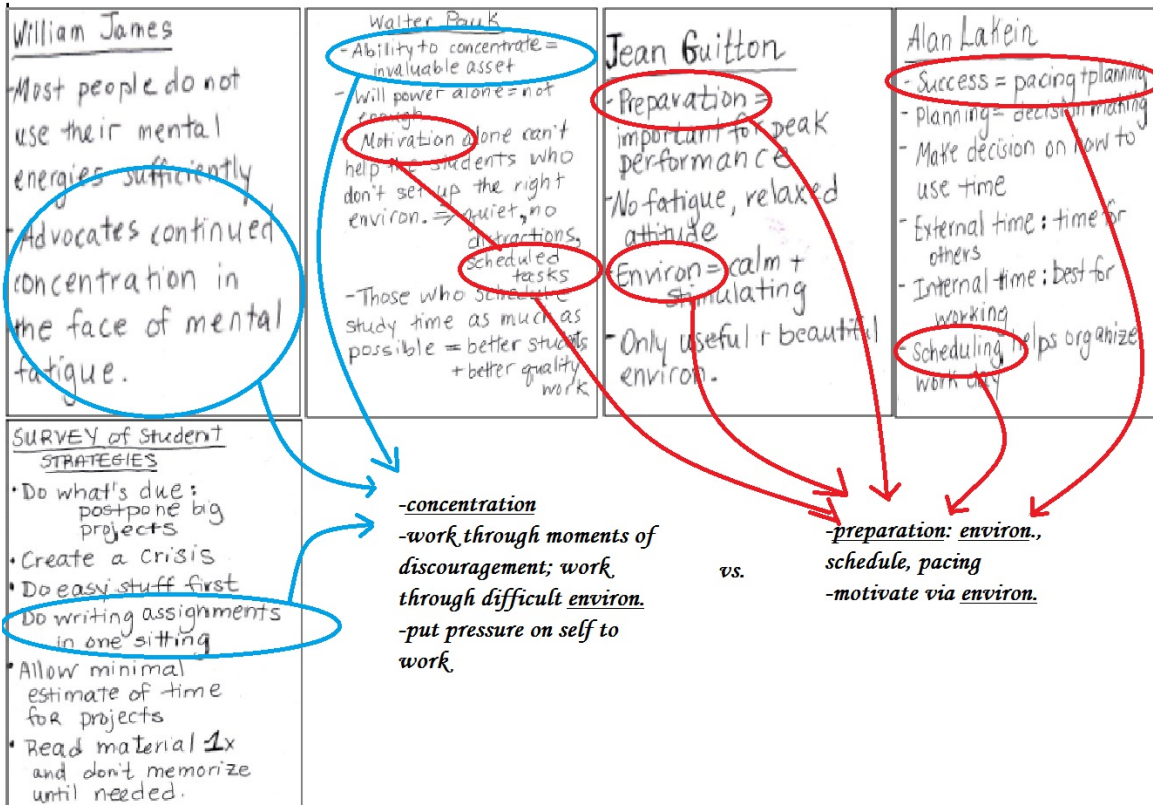 William James
-Most people do not
use their mental
energies sufficiently
-Advocates continued
concentration in
the face of mental
fatigue.
Walter Pauk
-Ability to concentrate =
invaluable asset
- Will power alone = not
enough
- Motivation alone can't
help the students who
don't set up the right
environ. ⇒ quiet, no
distractions,
scheduled
tasks
-Those who schedule
study time as much as
possible = better students
+ better quality
work
Jean Guitton
-Preparation =
important for peak
performance
-No fatigue, relaxed
attitude
-Environ = calm +
stimulating
-Only useful r beautiful
environ.
Alan Lakein
- Success = pacing + planning
- Planning = decision making
- Make decision on how to
use time
- External time : time for
others
- Internal time : best for
working
- Scheduling helps organize
work day
SURVEY of Student
STRATEGIES
• Do what's due :
postpone big
projects
• Create a crisis
• Do easy stuff first
Do writing assignments
in one sitting
• Allow minimal
estimate of time
for projects
• Read material 1x
and don't memorize
until needed.
-concentration
-work through moments of
discouragement; work
through difficult environ.
-put pressure on self to
work
vs.
-preparation: environ.,
schedule, pacing
-motivate via environ.